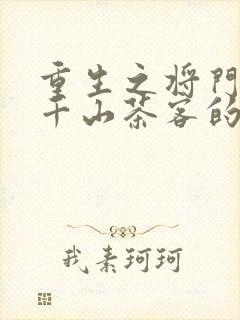 重生之将门
千山茶客的
我素珂珂